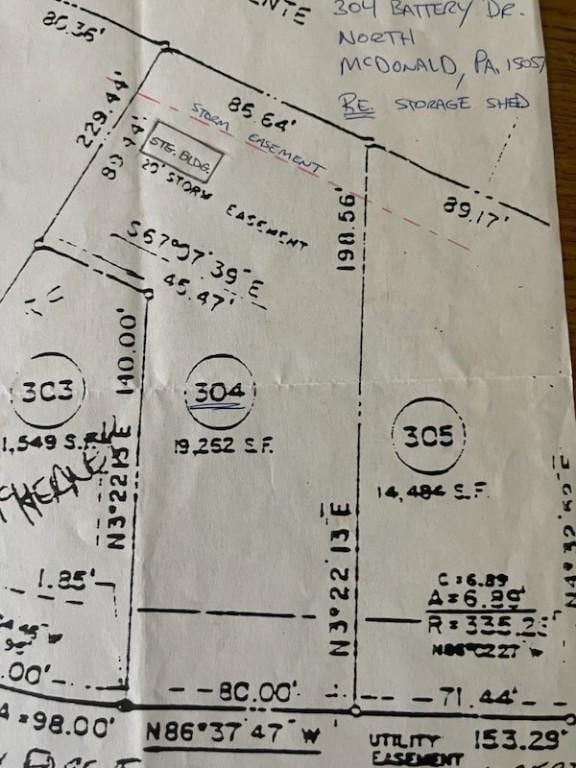 304 BATTERY DR.
NORTH
MCDONALD, PA. 15057
RE STORAGE SHED
80.36'
85.64'
STORM EASEMENT
229.44'
STG. BLDG.
20' STORM EASEMENT
89.17'
198.56'
S67°07'39"E
45.47'
140.00'
303
304
305
1,549 S.F.
19,252 S.F.
14,484 S.F.
N3°22'13"E
N3°22'13"E
1.85'
C=6.89
A=6.89'
.00'
80.00'
71.44'
A=98.00'
N86°37'47"W
UTILITY
EASEMENT
153.29'